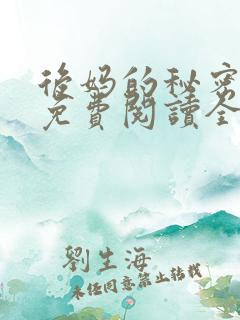 後妈的秘密
免費閱讀全
劉生海
未经同意禁止转载